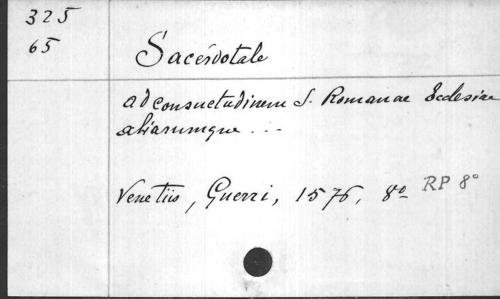 325
65
Sacerdotale
ad consuetudinem S. Romanae Ecclesiae
aliarumque ...
Venetiis, Guerri, 1576, 8o RP 8°